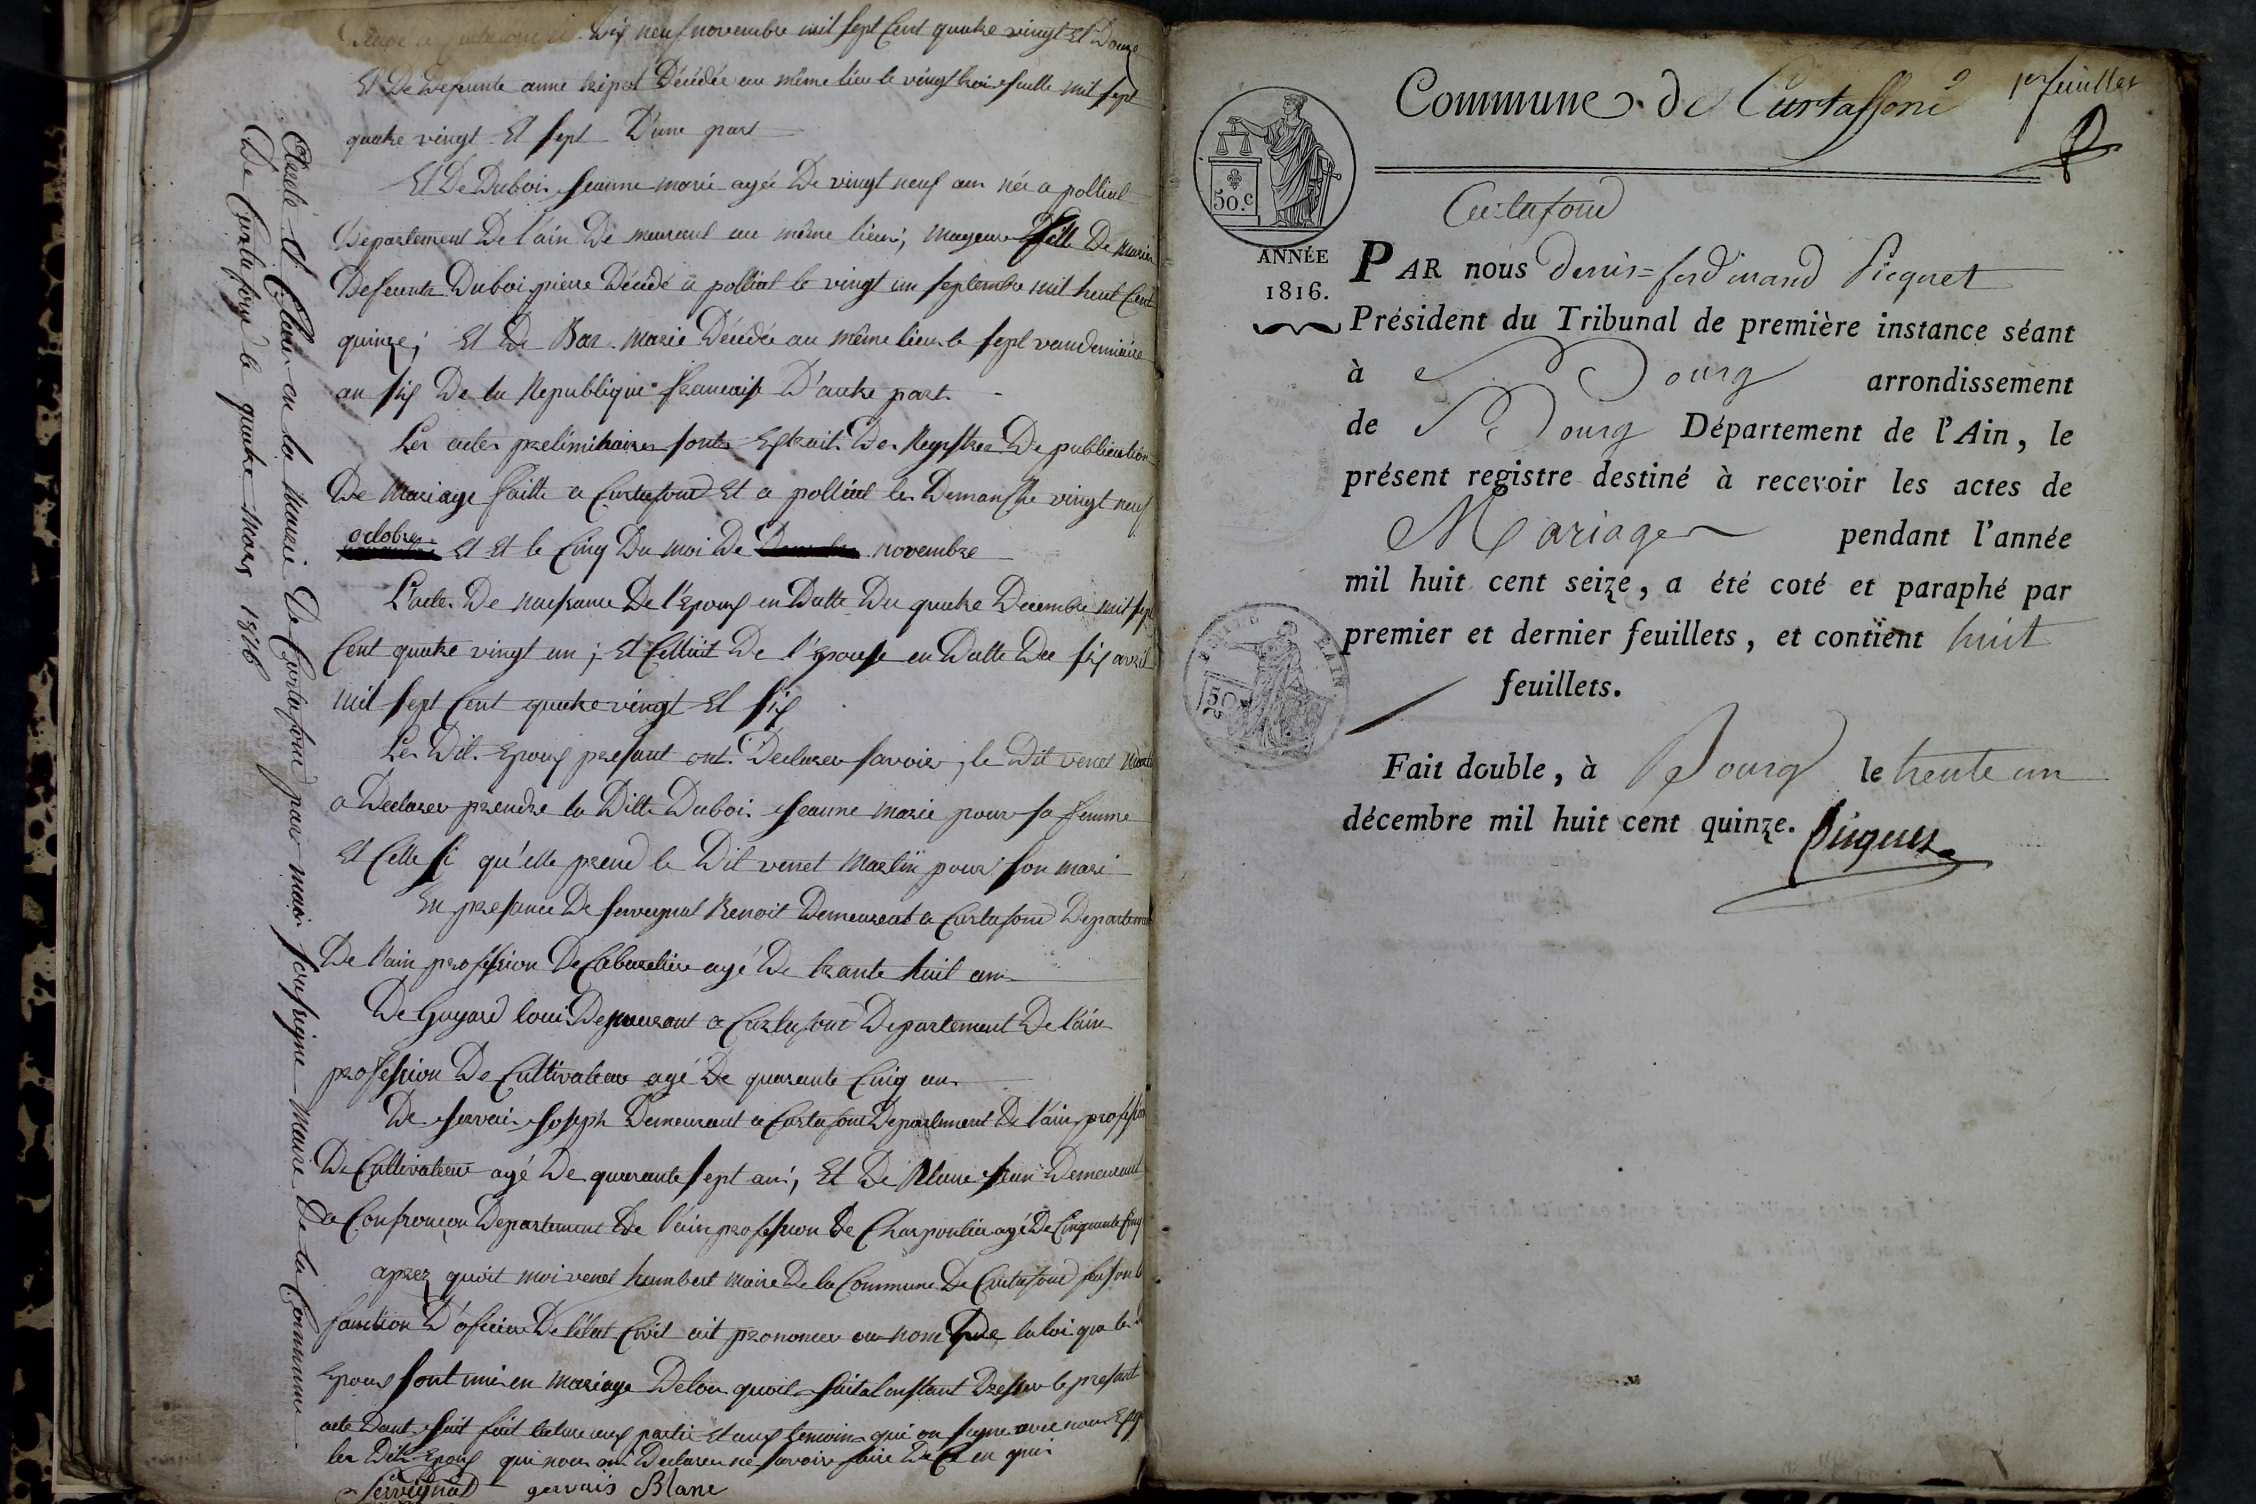 dix neuf novembre mil sept Cent quatre vingt Et Douze
Et De Defunte anne tripoz Décédée au même lieu le vingt trois juille mil sept
quatre vingt Et sept D'une part
Et De Duboi Jeanne marie agée De vingt neuf an née a polliat
Département De l'ain De meurant au même lieu; mageure fille De
Defeunts Duboi pierre Décédé a polliat le vingt un septembre mil huit Cent
quinze; Et De Bar Marie Décédée au même lieu le sept vandemiaire
an six De la Republique francaise D'autre part.
Les actes preliminaires sonts Extrait Des Registres De publication
De Mariage faitte a Curtafond Et a polliat les Dimanche vingt neuf
octobre Et Et le Cinq Du moi De novembre
L'acte De naissance De l'Epoux en Datte Du quatre Decembre mil sept
Cent quatre vingt un; Et Celluit De l'Epouse en Datte Du six avril
mil sept Cent quatre vingt Et six
Les Dit Epoux presant ont Declarer savoir, le Dit venet
a Declarer prendre la Ditte Duboi Jeanne marie pour sa femme
Et Celle si qu'elle prend le Dit venet Martin pour son mari
En presance De serveynat Benoit Demeurant a Curtafond Departement
De l'ain profession De Cabaretier agé De trante huit an
De Guyard loui Demeurant a Curtafond Departement De l'ain
profession De Cultivateur agé De quarante Cinq an
De Jervai Joseph Demeurant a Curtafond Departement De l'ain profession
De Cultivateur agé De quarante sept an; Et De Blanc Jean Demeurant
a Confrançon Departement De l'ain profession De Charpontier agé De Cinquante Cinq
aprez quoit moi venet humbert maire De la Commune De Curtafond faison
fonction D'oficier De l'état Civil ait prononcer au nom Que la loi que les
Epoux sont uni en mariage Delon quoit Jait a l'instant Dresser le presant
acte Dont Jait fait lecture aux partie Et aux temoins qui on signe avec nous
les Dits Epoux qui nous on Declarer ne savoir faire De Ce en qui
Serveynat gervais Blanc
Clos Et arrete en la Mairie De Curtafond par moi soussigne Maire De la Commune
De Curtafond le quatre Mars 1816
Commune de Curtaffond 1er feuillet
50.c
ANNÉE
1816.
Curtafond
PAR nous Denis=ferdinand Picquet
Président du Tribunal de première instance séant
à Bourg arrondissement
de Bourg Département de l'Ain, le
présent registre destiné à recevoir les actes de
Mariage pendant l'année
mil huit cent seize, a été coté et paraphé par
premier et dernier feuillets, et contient huit
feuillets.
Fait double, à Bourg le trente un
décembre mil huit cent quinze. Picquet